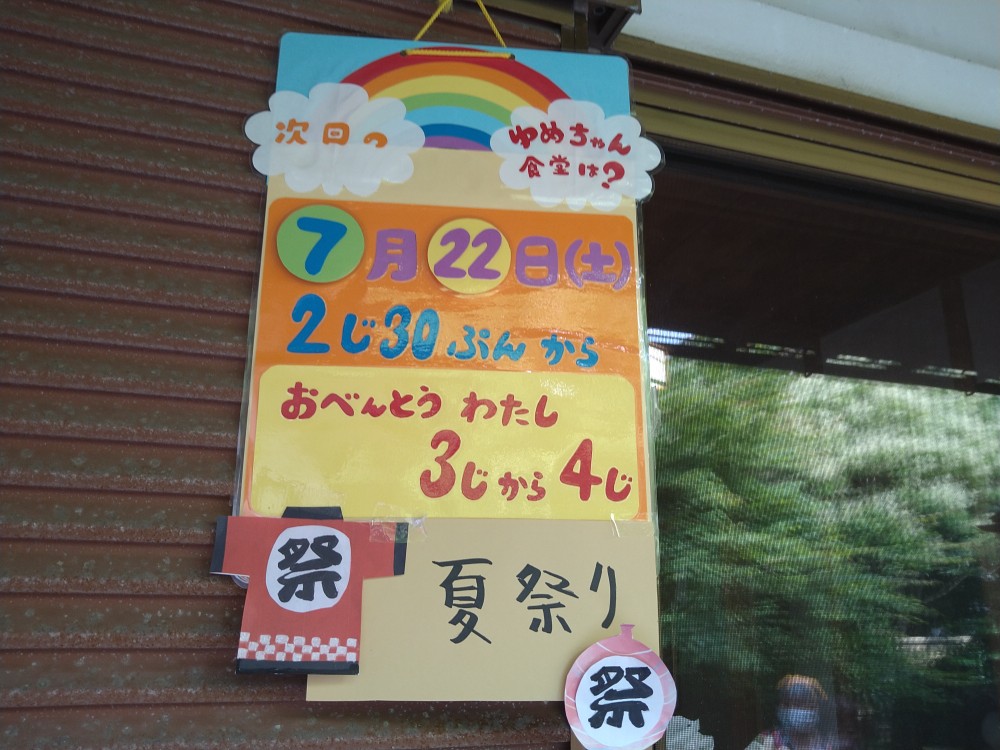 次回の
ゆめちゃん
食堂は?
7月22日(土)
2じ30ぷんから
おべんとう わたし
3じから4じ
祭
夏祭り
祭